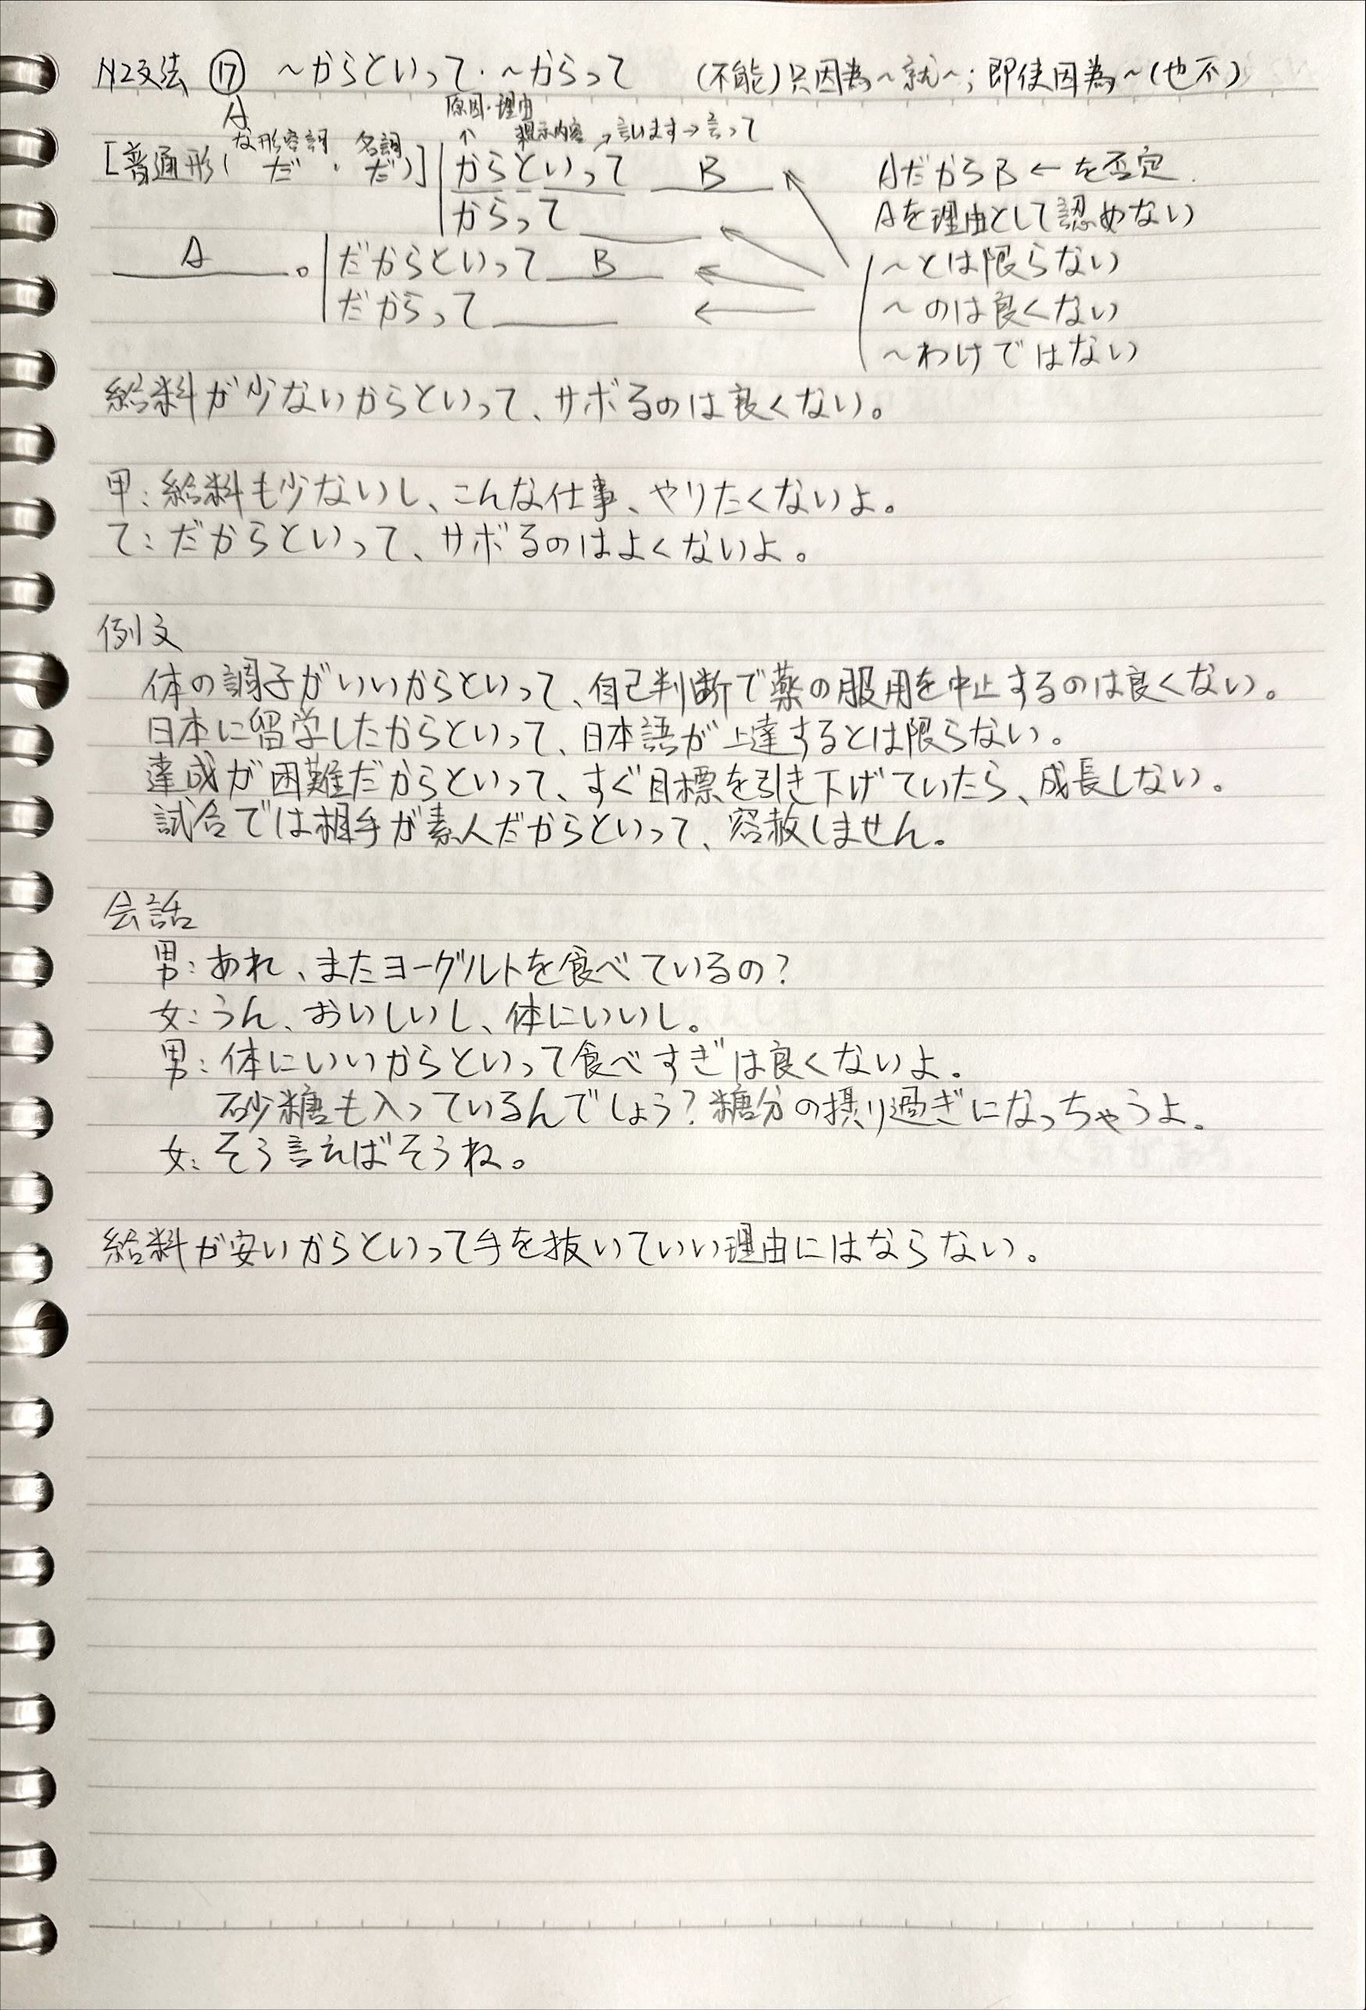 N2文法 ⑰ ～からといって・～からって (不能)只因為～就～；即使因為～(也不)
A
原因・理由
な形容詞 名詞 提示内容 言います→言って
[普通形( だ ・ だ)] からといって B AだからB←を否定
からって Aを理由として認めない
A 。 だからといって B ～とは限らない
だからって ～のは良くない
～わけではない
給料が少ないからといって、サボるのは良くない。
甲：給料も少ないし、こんな仕事、やりたくないよ。
て：だからといって、サボるのはよくないよ。
例文
体の調子がいいからといって、自己判断で薬の服用を中止するのは良くない。
日本に留学したからといって、日本語が上達するとは限らない。
達成が困難だからといって、すぐ目標を引き下げていたら、成長しない。
試合では相手が素人だからといって、容赦しません。
会話
男：あれ、またヨーグルトを食べているの？
女：うん、おいしいし、体にいいし。
男：体にいいからといって食べすぎは良くないよ。
砂糖も入っているんでしょう？糖分の摂り過ぎになっちゃうよ。
女：そう言えばそうね。
給料が安いからといって手を抜いていい理由にはならない。